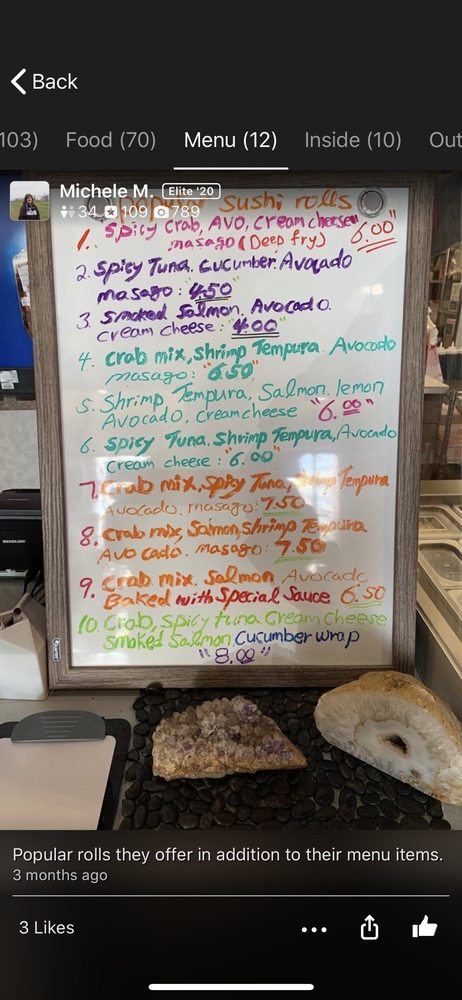 Back
103) Food (70) Menu (12) Inside (10) Out
Michele M. Elite '20
34 109 789
Popular Sushi rolls
1. Spicy Crab, Avo, Cream cheese
masago (Deep fry) 6.00"
2. Spicy Tuna. Cucumber. Avocado
masago: "4.50
3. Smoked Salmon. Avocado.
Cream cheese: "4.00"
4. Crab mix, Shrimp Tempura. Avocado
masago: "6.50"
5. Shrimp Tempura, Salmon, lemon
Avocado, Cream cheese "6.00"
6. Spicy Tuna. Shrimp Tempura, Avocado
Cream cheese: "6.00"
7. Crab mix, Spicy Tuna, Shrimp Tempura
Avocado. masago: 7.50
8. Crab mix, Salmon, Shrimp Tempura
Avocado. masago: 7.50
9. Crab mix, Salmon, Avocado
Baked with Special Sauce 6.50
10. Crab, Spicy tuna. Cream Cheese
Smoked Salmon, Cucumber wrap
"8.00"
Popular rolls they offer in addition to their menu items.
3 months ago
3 Likes